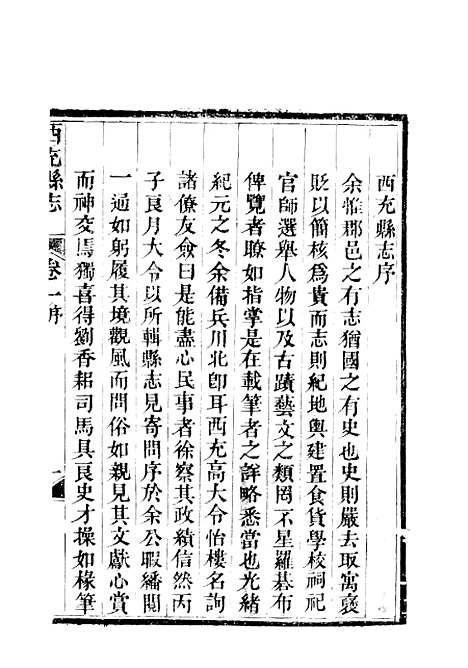 西充縣志序
余惟郡邑之有志猶國之有史也史則嚴去取寓襃
貶以簡核爲貴而志則紀地輿建置食貨學校祠祀
官師選舉人物以及古蹟藝文之類罔不星羅棊布
俾覽者瞭如指掌是在載筆者之詳略悉當也光緒
紀元之冬余備兵川北卽耳西充高大令怡樓名詢
諸僚友僉曰是能盡心民事者徐察其政績信然丙
子良月大令以所輯縣志見寄問序於余公暇繙閱
一過如躬履其境觀風而問俗如親見其文獻心賞
而神交焉獨喜得劉香耜司馬具良史才操如椽筆
西充縣志
卷一序
一